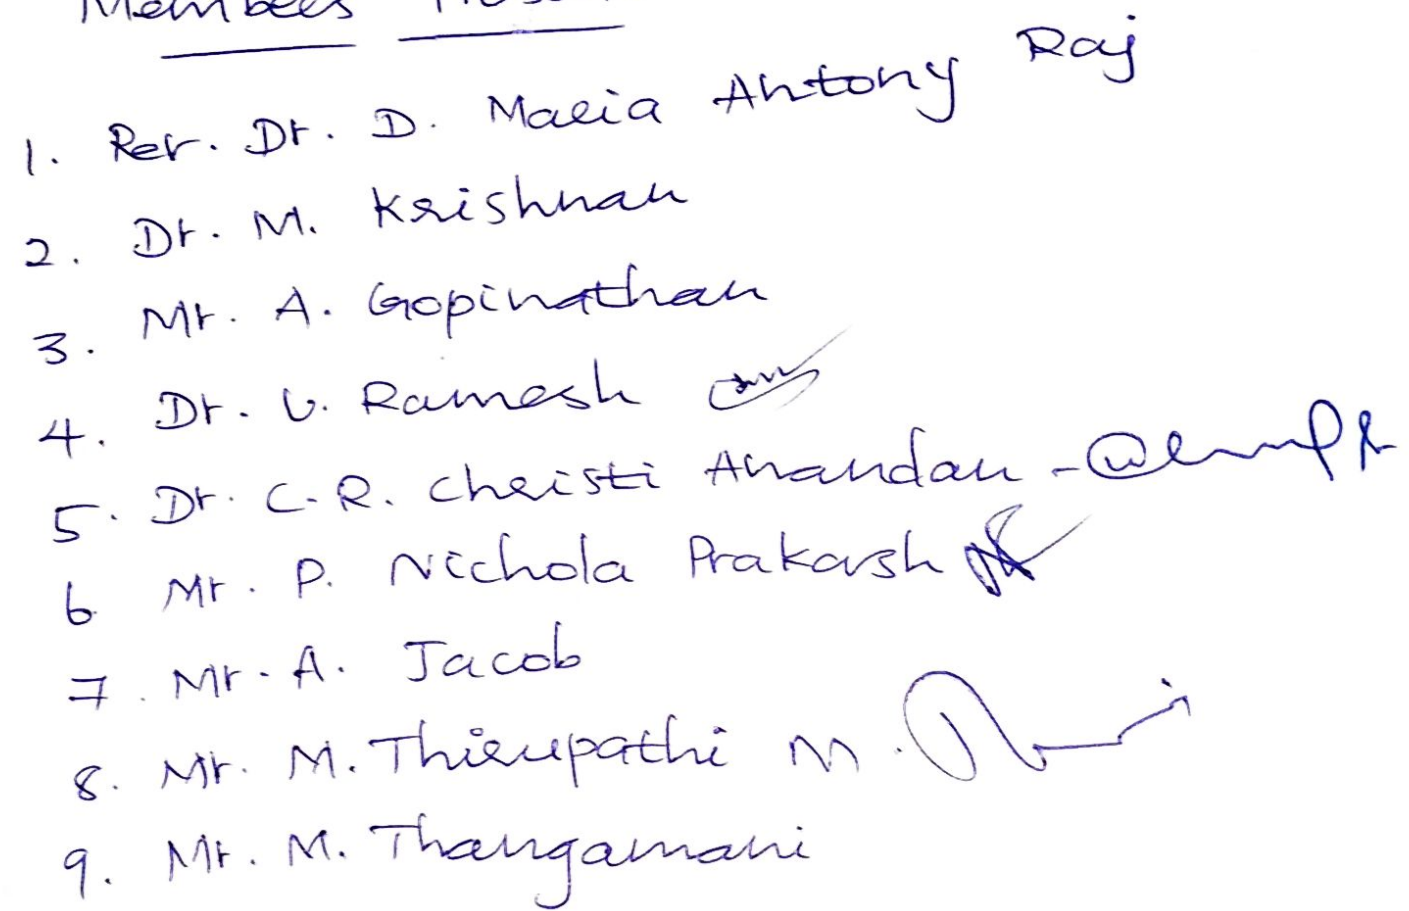 Members
1. Rev. Dr. D. Maria Antony Raj
2. Dr. M. Krishnan
3. Mr. A. Gopinathan
4. Dr. U. Ramesh
5. Dr. C.R. Christi Anandan -
6 Mr. P. Nichola Prakash
7. Mr. A. Jacob
8. Mr. M. Thirupathi M.
9. Mr. M. Thangamani